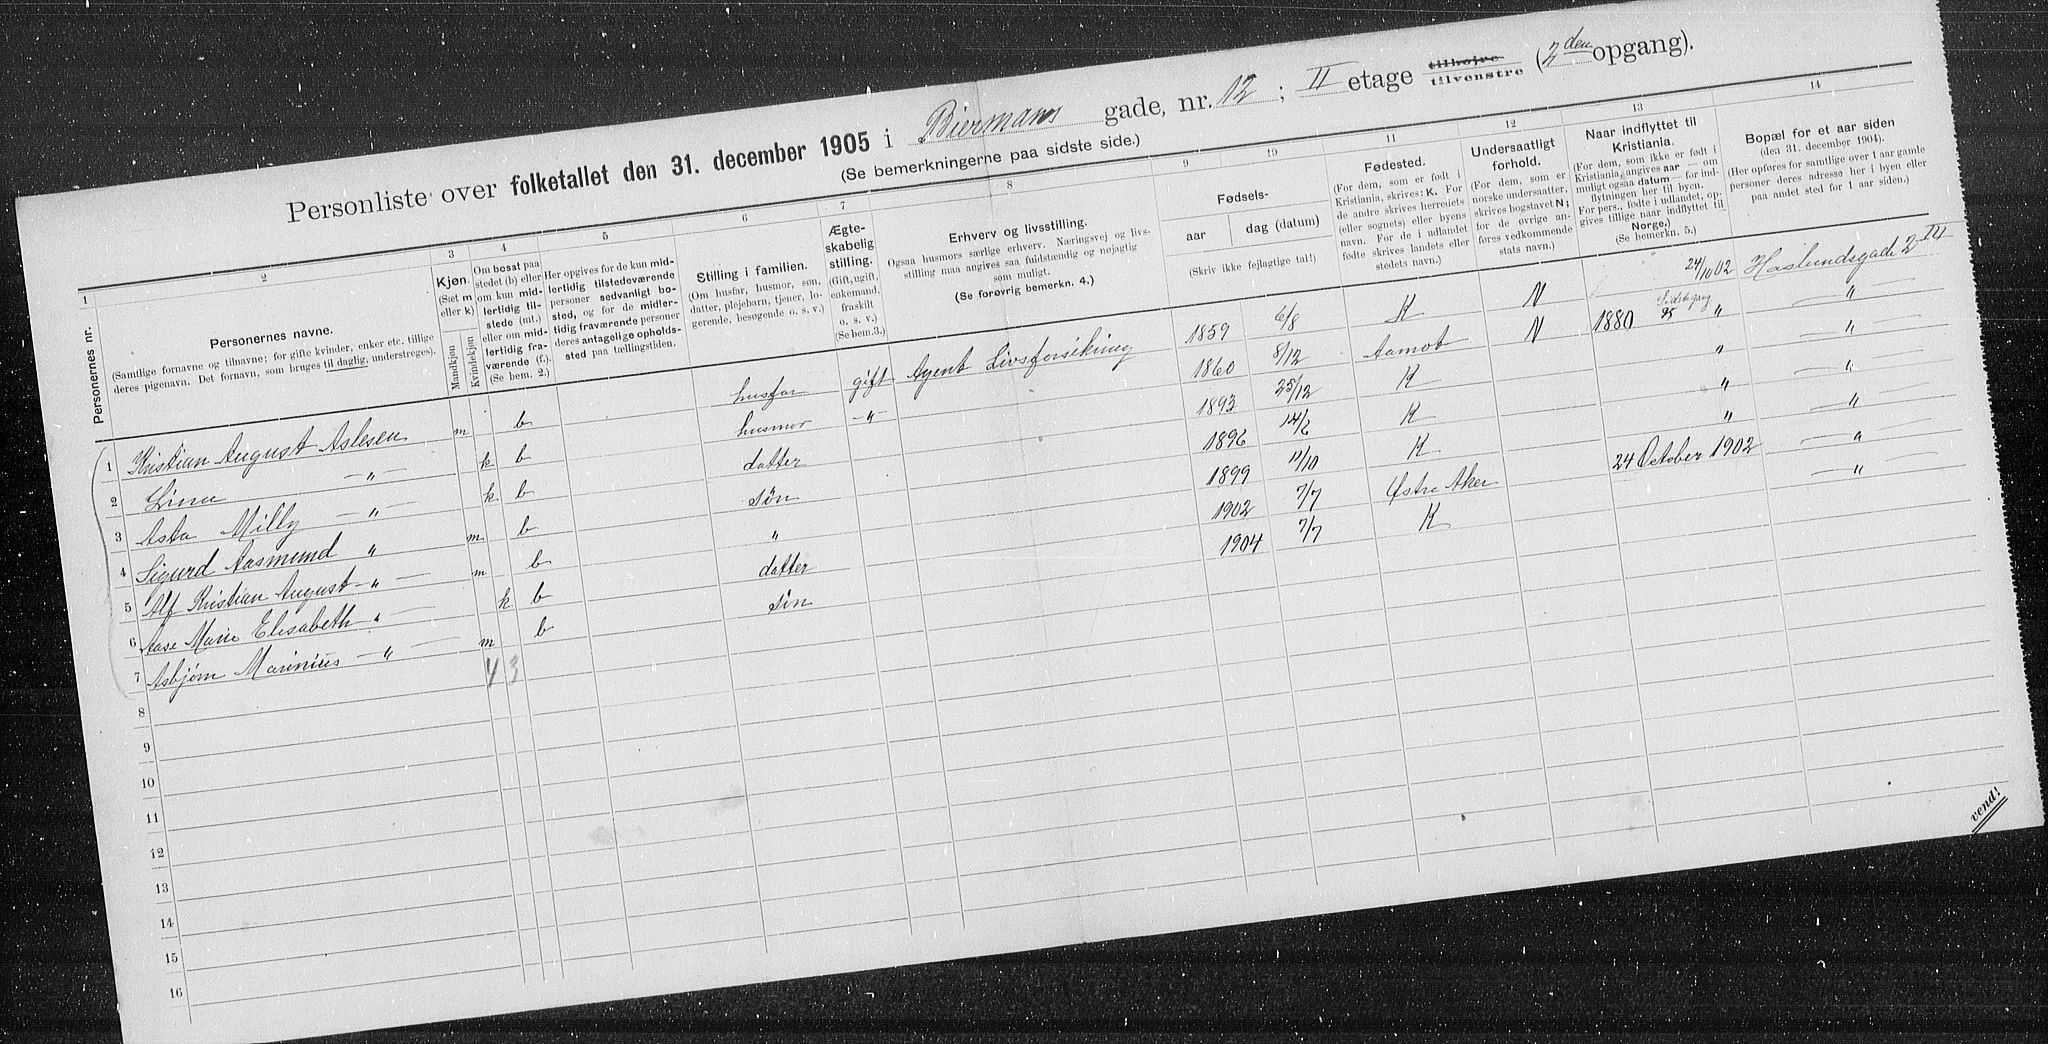 Personliste over folketallet den 31. december 1905 i Biermanns gade, nr. 12; II etage tilhøjre tilvenstre (2den opgang).
(Se bemerkningerne paa sidste side.)
1 2 3 4 5 6 7 8 9 10 11 12 13 14
Personernes nr.
Personernes navne.
(Samtlige fornavne og tilnavne; for gifte kvinder, enker etc. tillige
deres pigenavn. Det fornavn, som bruges til daglig, understreges).
Kjøn.
(Sæt m
eller k)
Mandkjøn
Kvindekjøn
Om bosat paa
stedet (b) eller
om kun mid-
lertidig til-
stede (mt.)
eller om mid-
lertidig fra-
værende (f.).
(Se bem. 2.)
Her opgives for de kun mid-
lertidig tilstedeværende
personer sedvanlig bo-
sted, og for de midler-
tidig fraværende personer
deres antagelige opholds-
sted paa tællingstiden.
Stilling i familien.
(Om husfar, husmor, søn,
datter, plejebarn, tjener, lo-
gerende, besøgende o. s. v.)
Ægte-
skabelig
stilling.
(Gift, ugift,
enkemand,
fraskilt
o. s. v.)
(Se bem.3.)
Erhverv og livsstilling.
Ogsaa husmors særlige erhverv. Næringsvej og livs-
stilling maa angives saa fuldstændig og nøjagtig
som muligt.
(Se forøvrig bemerkn. 4.)
Fødsels-
aar
dag (datum)
(Skriv ikke fejlagtige tal!)
Fødested.
(For dem, som er født i
Kristiania, skrives: K. For
de andre skrives herredets
(eller sognets) eller byens
navn. For de i udlandet
fødte skrives landets eller
stedets navn.)
Undersaatligt
forhold.
(For dem, som er
norske undersaatter,
skrives bogstavet N;
for de øvrige an-
føres vedkommende
stats navn.)
Naar indflyttet til
Kristiania.
(For dem, som ikke er født i
Kristiania, angives aar — om
muligt ogsaa datum — for ind-
flytningen her til byen.
For pers., fødte i udlandet, op-
gives tillige naar indflyttet til
Norge.)
(Se bemerkn. 5.)
Bopæl for et aar siden
(den 31. december 1904).
(Her opføres for samtlige over 1 aar gamle
personer deres adresse her i byen eller
paa andet sted for 1 aar siden.)
1 Kristian August Aslesen m b husfar gift Agent Livsforsikring 1859 6/8 K N 24/10 02 Haslundsgade 2 IV
2 Lina — " — k b husmor — " — 1860 8/12 Aamot N 1880 " — " —
3 Asta Milly — " — k b datter 1893 25/12 K " — " —
4 Sigurd Aasmund " m b søn 1896 14/6 K " — " —
5 Alf Kristian August — " — m b " 1899 11/10 K " — " —
6 Aase Marie Elisabeth " k b datter 1902 7/7 Østre Aker 24 October 1902 — " —
7 Asbjørn Marinius — " — m b søn 1904 7/7 K — " —
4 3
8
9
10
11
12
13
14
15
16
vend!